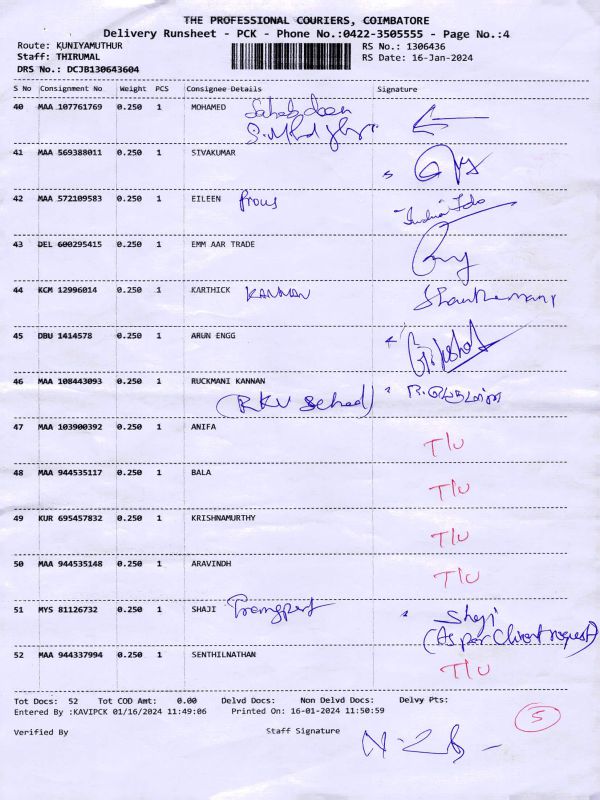 THE PROFESSIONAL COURIERS, COIMBATORE
Delivery Runsheet - PCK - Phone No.:0422-3505555 - Page No.:4
Route: KUNIYAMUTHUR RS No.: 1306436
Staff: THIRUMAL RS Date: 16-Jan-2024
DRS No.: DCJB130643604
S No Consignment No Weight PCS Consignee Details Signature
40 MAA 107761769 0.250 1 MOHAMED
41 MAA 569388011 0.250 1 SIVAKUMAR
42 MAA 572109583 0.250 1 EILEEN
43 DEL 600295415 0.250 1 EMM AAR TRADE
44 KCM 12996014 0.250 1 KARTHICK KANNAN
45 DBU 1414578 0.250 1 ARUN ENGG
46 MAA 108443093 0.250 1 RUCKMANI KANNAN
47 MAA 103900392 1 ANIFA T/U
48 MAA 944535117 0.250 1 BALA T/U
49 KUR 695457832 0.250 1 KRISHNAMURTHY T/U
50 MAA 944535148 0.250 1 ARAVINDH T/U
51 MYS 81126732 0.250 1 SHAJI Transport Shaji
(As per Client request)
52 MAA 944337994 0.250 1 SENTHILNATHAN T/U
Tot Docs: 52 Tot COD Amt: 0.00 Delvd Docs: Non Delvd Docs: Delvy Pts:
Entered By :KAVIPCK 01/16/2024 11:49:06 Printed On: 16-01-2024 11:50:59
5
Verified By Staff Signature